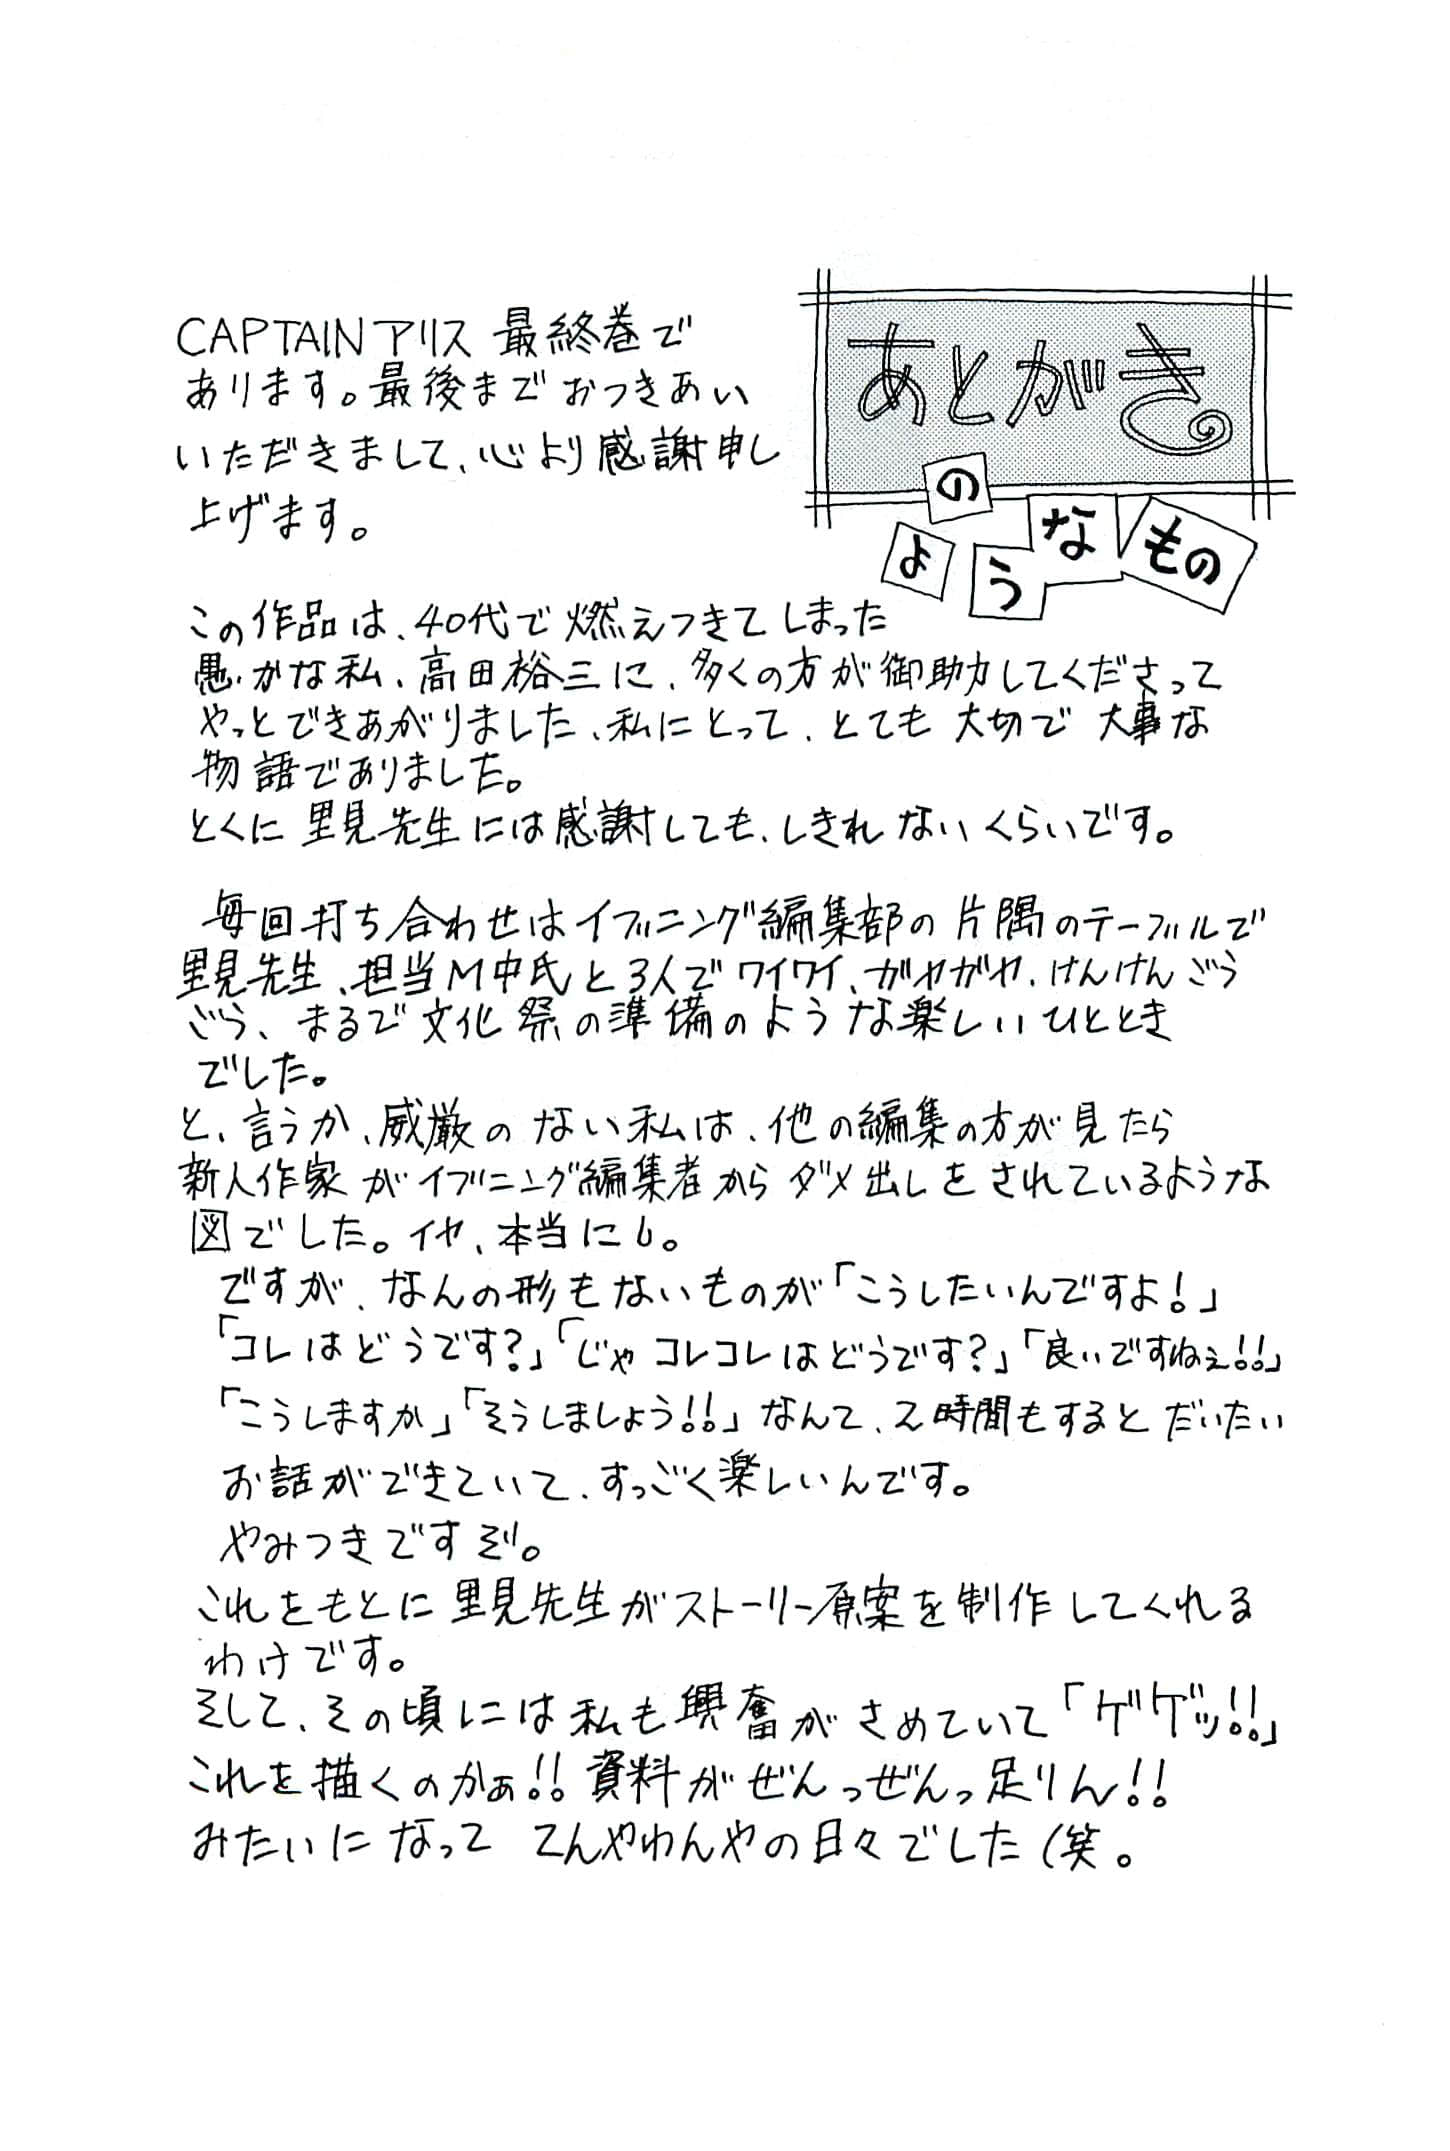 あとがき
のようなもの
CAPTAINアリス 最終巻で
あります。最後までおつきあい
いただきまして、心より感謝申し
上げます。
この作品は、40代で燃えつきてしまった
愚かな私、高田裕三に、多くの方が御助力してくださって
やっとできあがりました、私にとって、とても大切で大事な
物語でありました。
とくに里見先生には感謝しても、しきれないくらいです。
毎回打ち合わせはイブニング編集部の片隅のテーブルで
里見先生、担当M中氏と3人でワイワイ、ガヤガヤ、けんけんごう
ごう、まるで文化祭の準備のような楽しいひととき
でした。
と、言うか、威厳のない私は、他の編集の方が見たら
新人作家がイブニング編集者からダメ出しをされているような
図でした。イヤ、本当にも。
ですが、なんの形もないものが「こうしたいんですよ!」
「コレはどうです?」「じゃコレコレはどうです?」「良いですねぇ!!」
「こうしますか」「そうしましょう!!」なんて、2時間もするとだいたい
お話ができていて、すっごく楽しいんです。
やみつきですぞ。
これをもとに里見先生がストーリー原案を制作してくれる
わけです。
そして、その頃には私も興奮がさめていて「ゲゲッ!!」
これを描くのかぁ!!資料がぜんっぜんっ足りん!!
みたいになって てんやわんやの日々でした(笑。